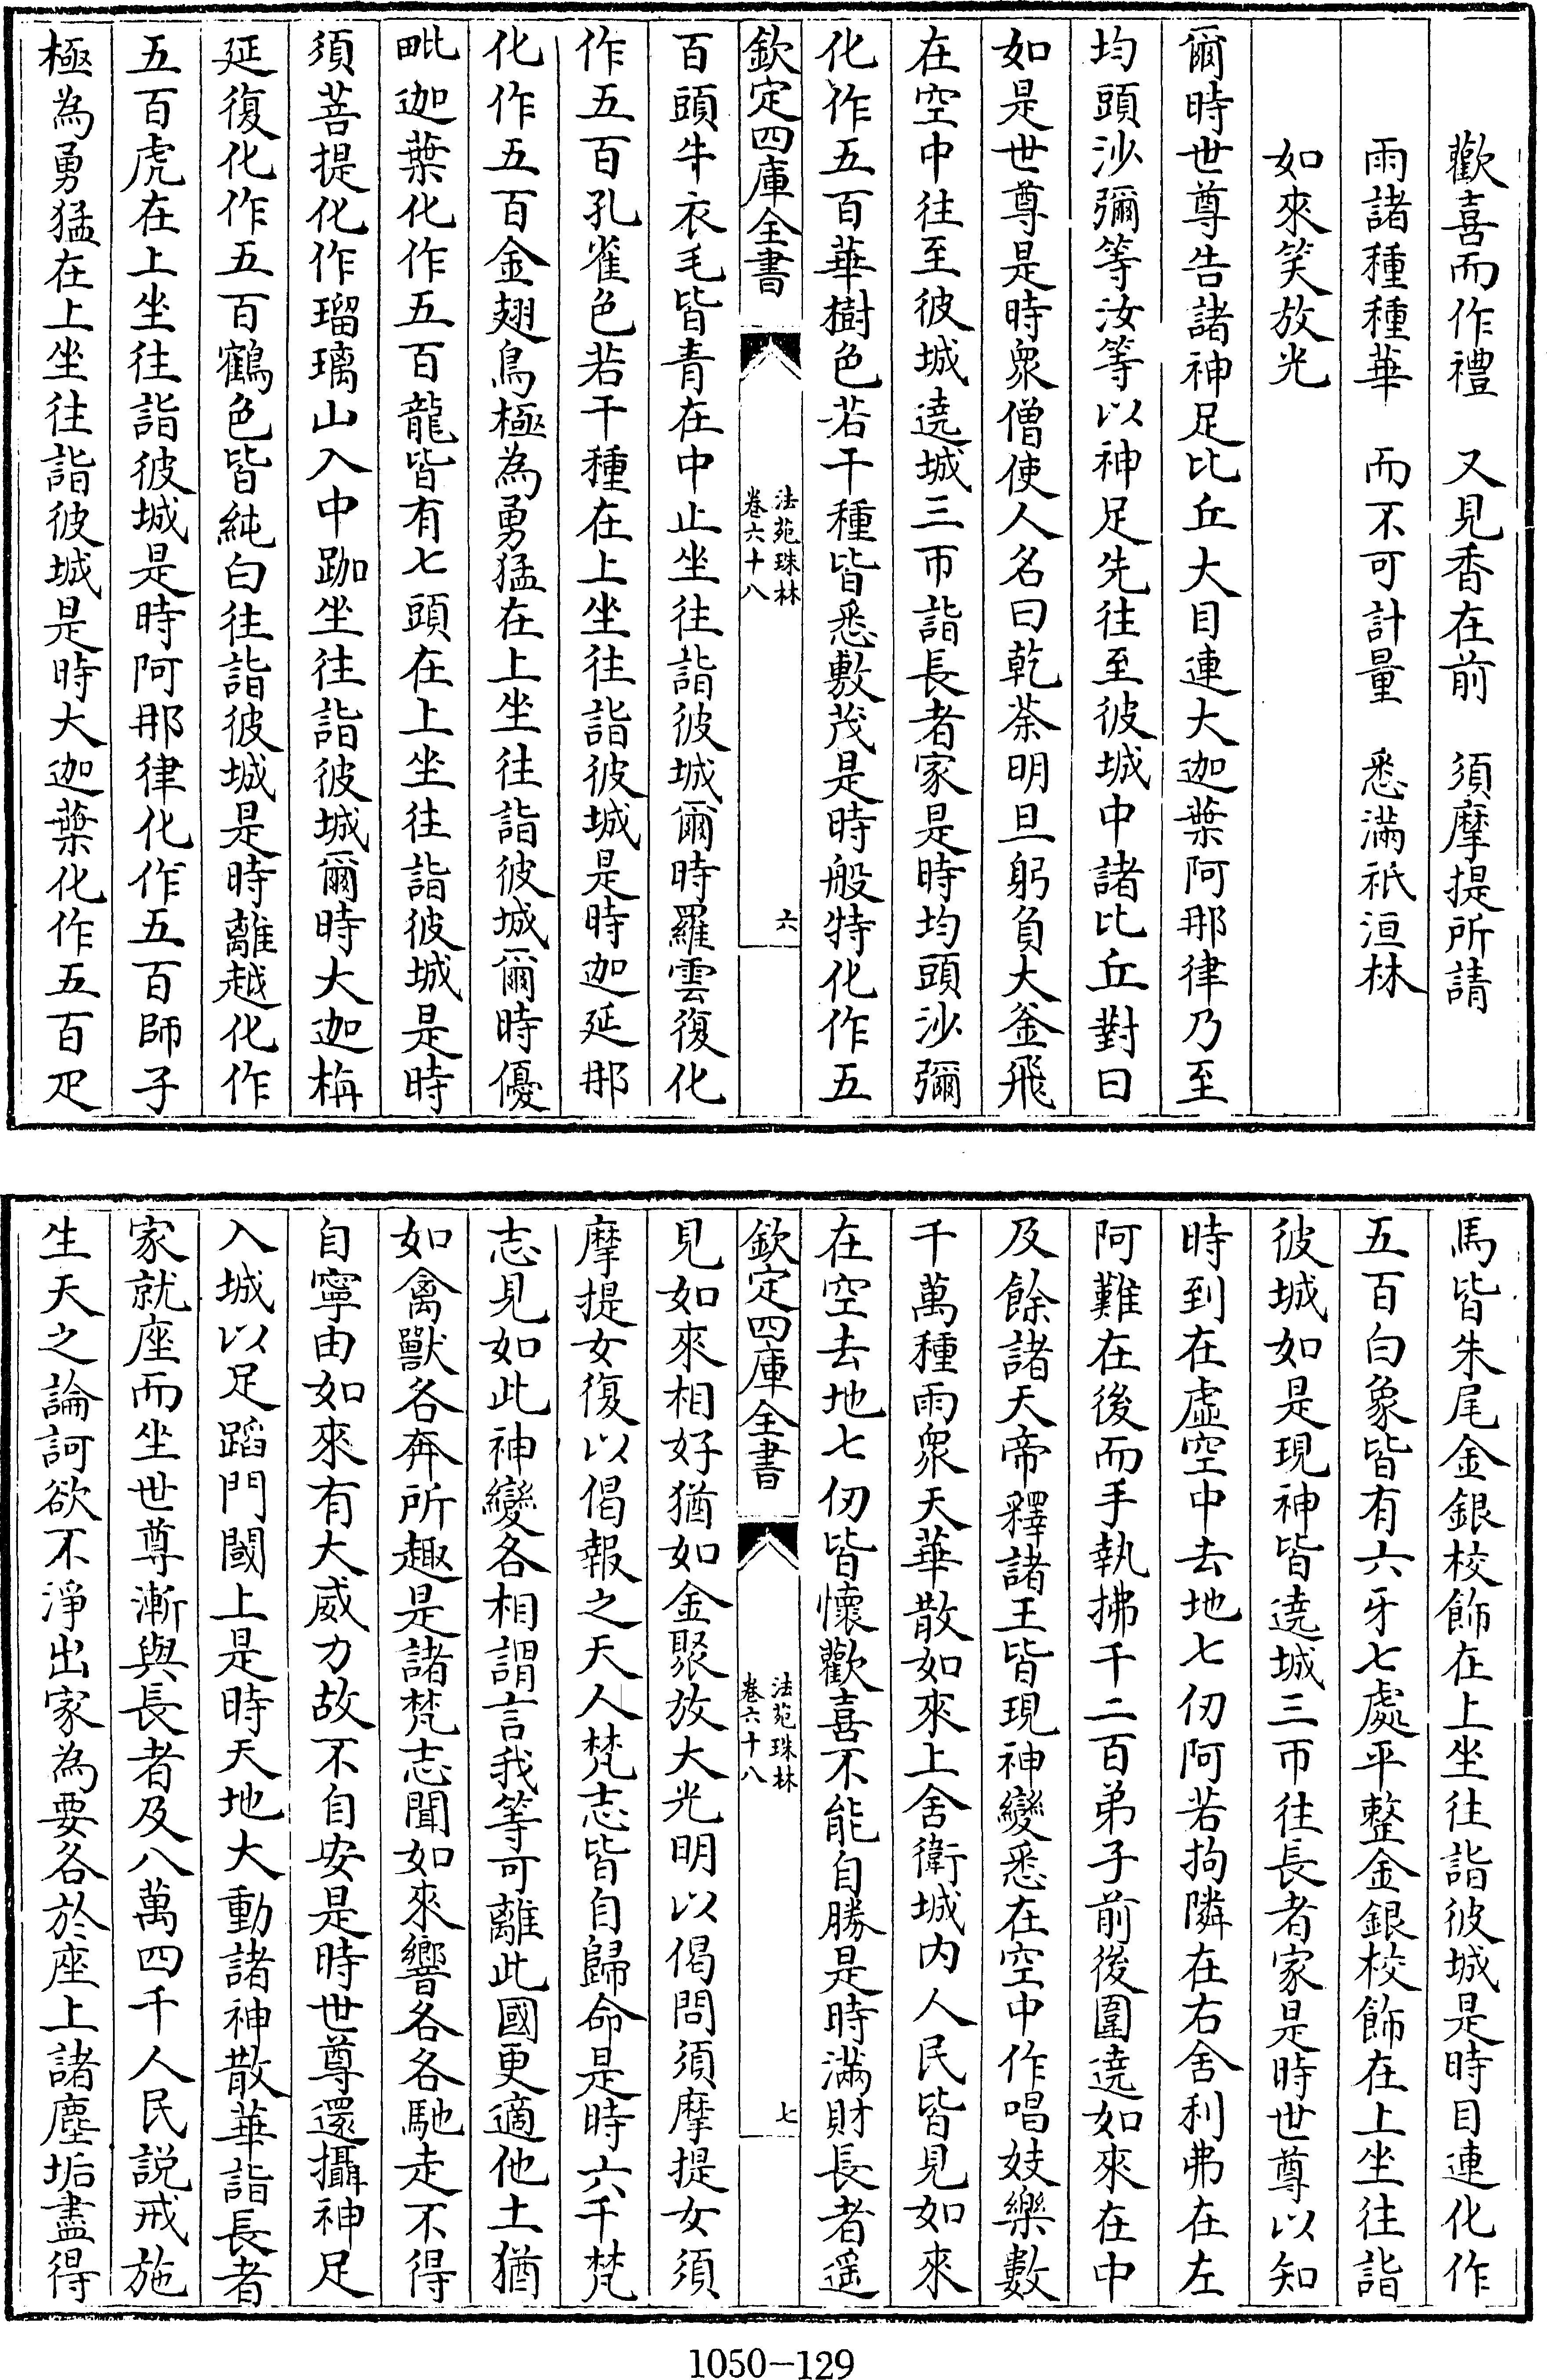 歡喜而作禮　又見香在前　須摩提所請
雨諸種種華　而不可計量　悉滿祇洹林
如來笑放光
爾時世尊告諸神足比丘大目連大迦葉阿那律乃至
均頭沙彌等汝等以神足先往至彼城中諸比丘對曰
如是世尊是時衆僧使人名曰乾荼明旦躬負大釜飛
在空中往至彼城遶城三帀詣長者家是時均頭沙彌
化作五百華樹色若干種皆悉敷茂是時般特化作五
欽定四庫全書
法苑珠林
卷六十八
六
百頭牛衣毛皆青在中止坐往詣彼城爾時羅雲復化
作五百孔雀色若干種在上坐往詣彼城是時迦延那
化作五百金翅鳥極為勇猛在上坐往詣彼城爾時優
毗迦葉化作五百龍皆有七頭在上坐往詣彼城是時
須菩提化作瑠璃山入中跏坐往詣彼城爾時大迦栴
延復化作五百鶴色皆純白往詣彼城是時離越化作
五百虎在上坐往詣彼城是時阿那律化作五百師子
極為勇猛在上坐往詣彼城是時大迦葉化作五百疋
馬皆朱尾金銀校飾在上坐往詣彼城是時目連化作
五百白象皆有六牙七處平整金銀校飾在上坐往詣
彼城如是現神皆遶城三帀往長者家是時世尊以知
時到在虛空中去地七仞阿若拘隣在右舍利弗在左
阿難在後而手執拂千二百弟子前後圍遶如來在中
及餘諸天帝釋諸王皆現神變悉在空中作唱妓樂數
千萬種雨衆天華散如來上舍衛城内人民皆見如來
在空去地七仞皆懷歡喜不能自勝是時滿財長者遥
欽定四庫全書
法苑珠林
卷六十八
七
見如來相好猶如金聚放大光明以偈問須摩提女須
摩提女復以偈報之天人梵志皆自歸命是時六千梵
志見如此神變各相謂言我等可離此國更適他土猶
如禽獸各奔所趣是諸梵志聞如來響各各馳走不得
自寧由如來有大威力故不自安是時世尊還攝神足
入城以足蹈門閾上是時天地大動諸神散華詣長者
家就座而坐世尊漸與長者及八萬四千人民説戒施
生天之論訶欲不淨出家為要各於座上諸塵垢盡得
1050-129